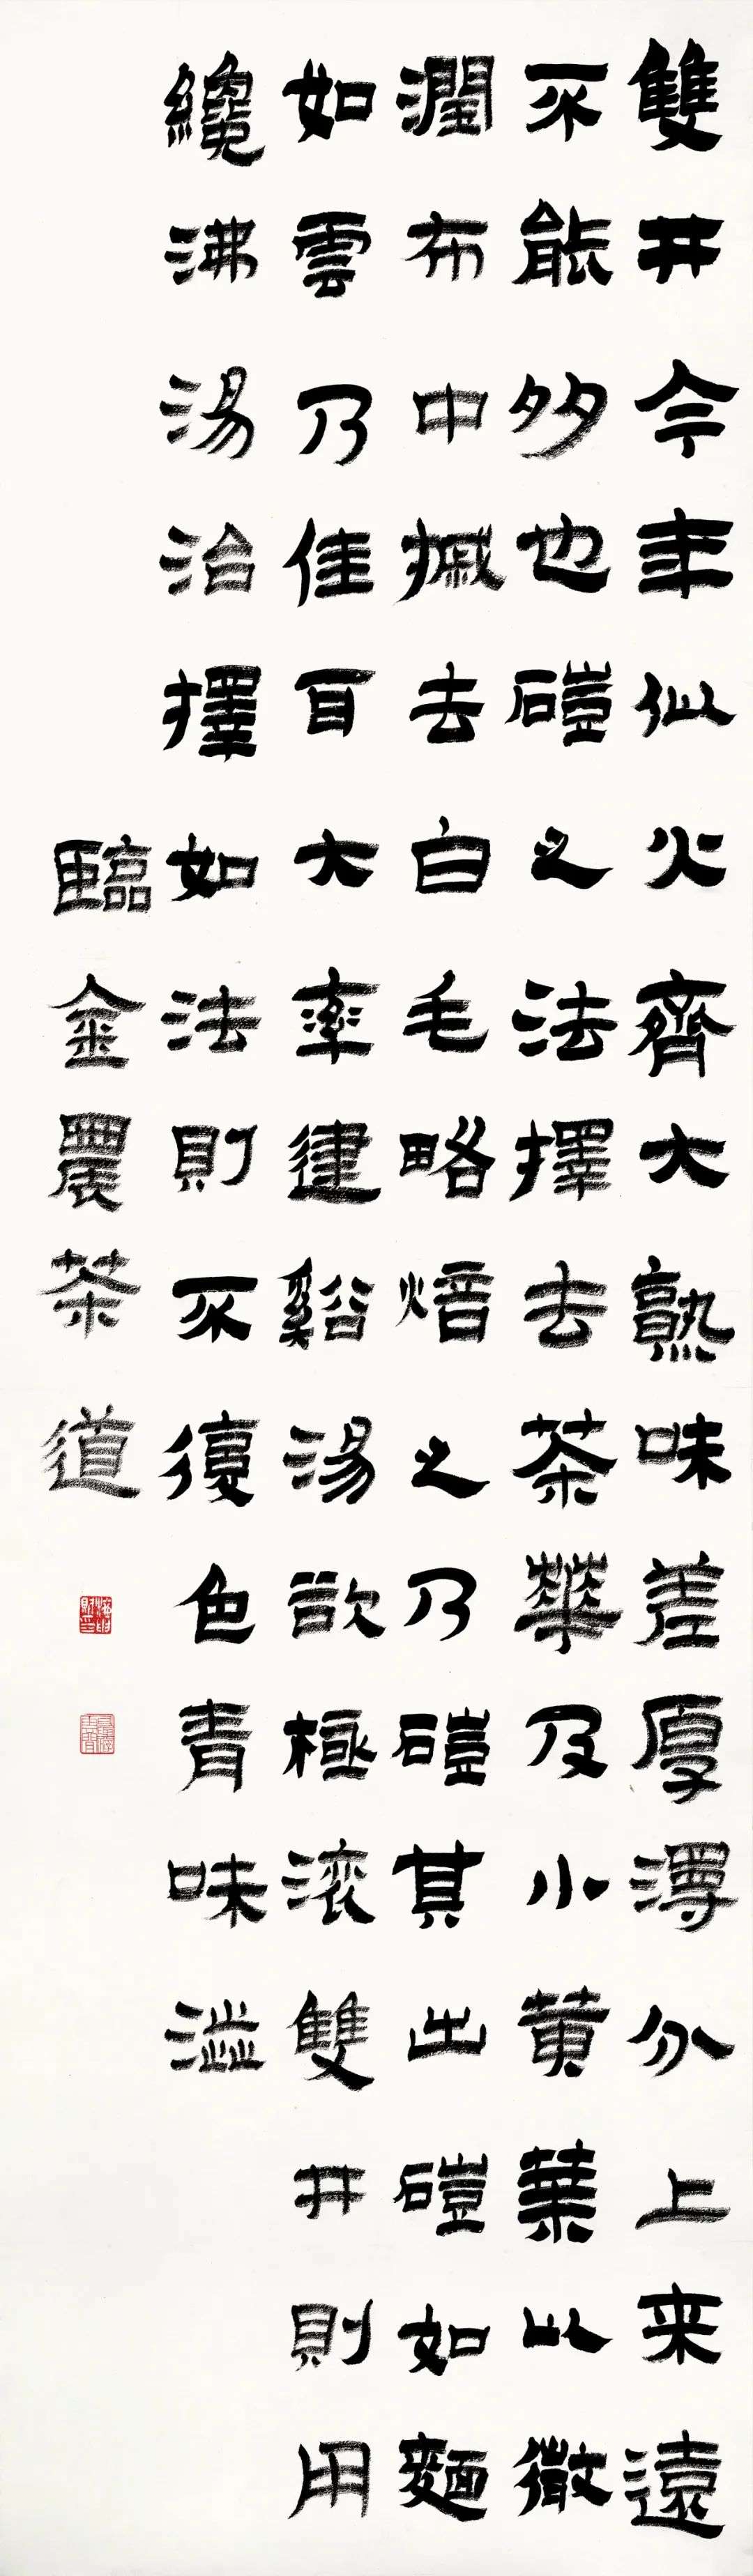 雙井今年似火齊大熟味差厚澤分上来遠
不能多也磑之法擇去茶華及小黄葉以微
潤布中搣去白毛略焙之乃磑其出磑如麵
如雲乃佳耳大率建谿湯欲極滚雙井則用
纔沸湯治擇如法則不復色青味澁
臨金農茶道